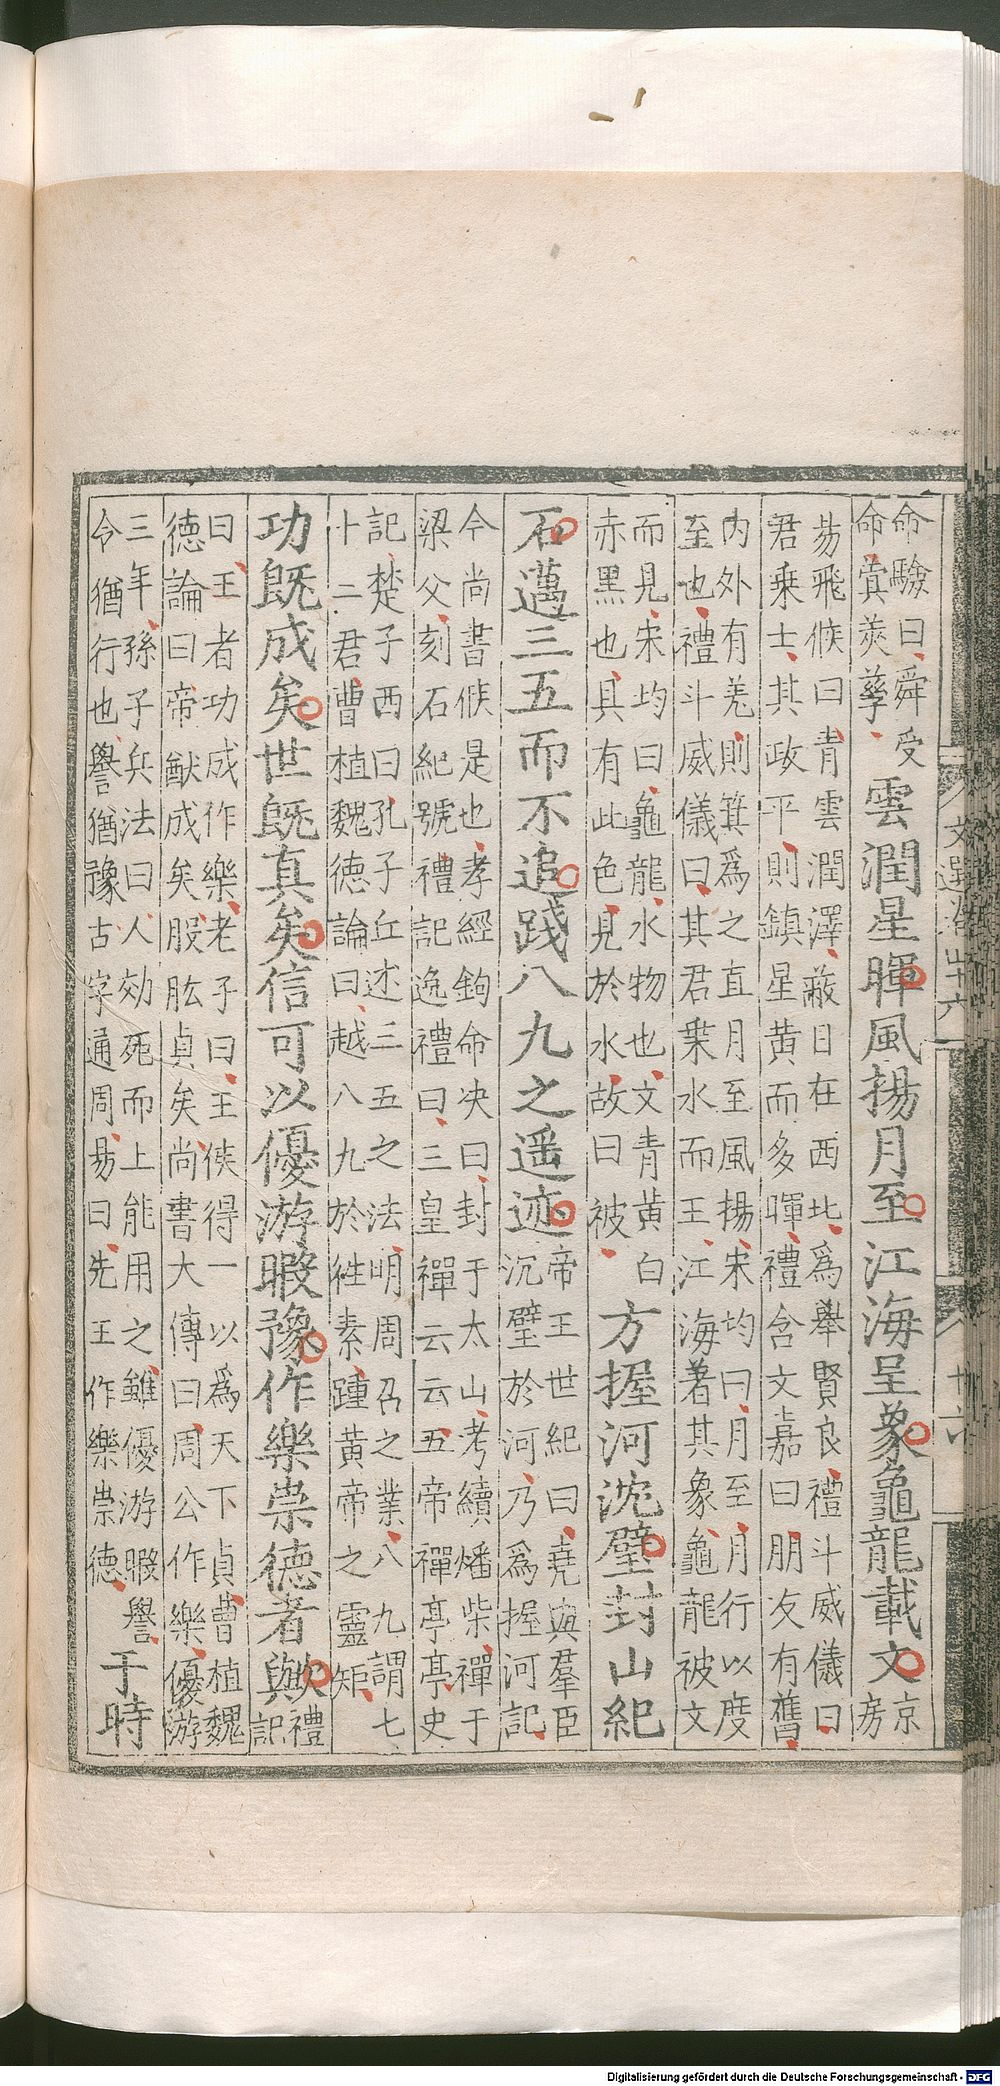 命驗曰舜受
命蓂莢孳雲潤星暉風揚月至江海呈象龜龍載文京
房
昜飛候曰青雲潤澤蔽日在西北為舉賢良禮斗威儀曰
君乘土其政平則鎮星黃而多暉禮含文嘉曰朋友有舊
內外有羌則箕為之直月至風揚宋均曰月至月行以度
至也禮斗威儀曰其君乗水而王江海著其象龜龍被文
而見宋均曰龜龍水物也文青黃白
赤黑也具有此色見於水故曰被方握河沈璧封山紀
石邁三五而不追踐八九之遥迹帝王世紀曰堯與羣臣
沉璧於河乃為握河記
今尚書候是也孝經鉤命决曰封于太山考績燔柴禪于
梁父刻石紀號禮記逸禮曰三皇禪云云五帝禪亭亭史
記楚子西曰孔子丘述三五之法明周召之業八九謂七
十二君曹植魏德論曰越八九於徃素踵黃帝之靈矩
功旣成矣世旣真矣信可以優游暇豫作樂崇德者歟禮
記
曰王者功成作樂老子曰王侯得一以為天下貞曹植魏
德論曰帝猷成矣股肱貞矣尚書大傳曰周公作樂優游
三年孫子兵法曰人効死而上能用之雖優游暇譽
令猶行也譽猶豫古字通周昜曰先王作樂崇德于時
文選卷四十六
十六
Digitalisierung gefördert durch die Deutsche Forschungsgemeinschaft - DFG